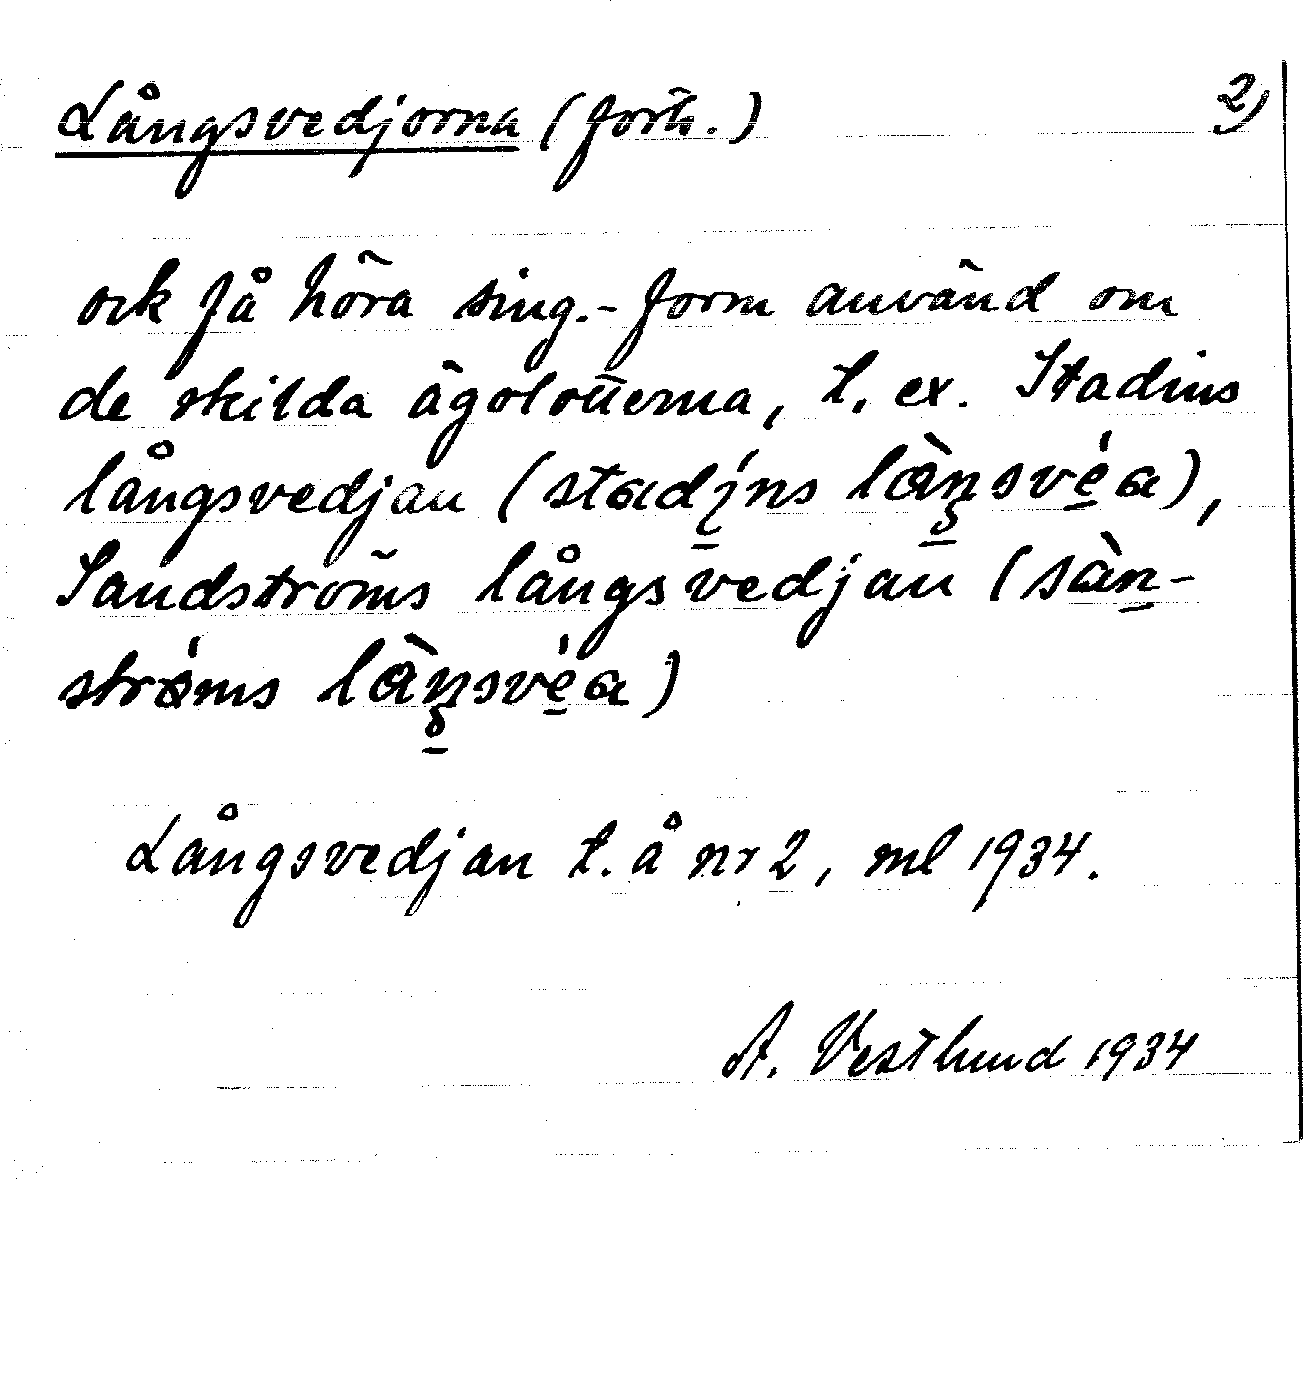 Långsvedjorna (forts.) 2)
ock få höra sing.-form använd om
de skilda ägolotterna, t. ex. Stadins
långsvedjan (stadi̱ns là̱ŋsvé̱a),
Sandströms långsvedjan (sàn̠-
strǿms là̱ŋsvé̱a)
Långsvedjan t. å nr 2, ml 1934.
A. Vestlund 1934